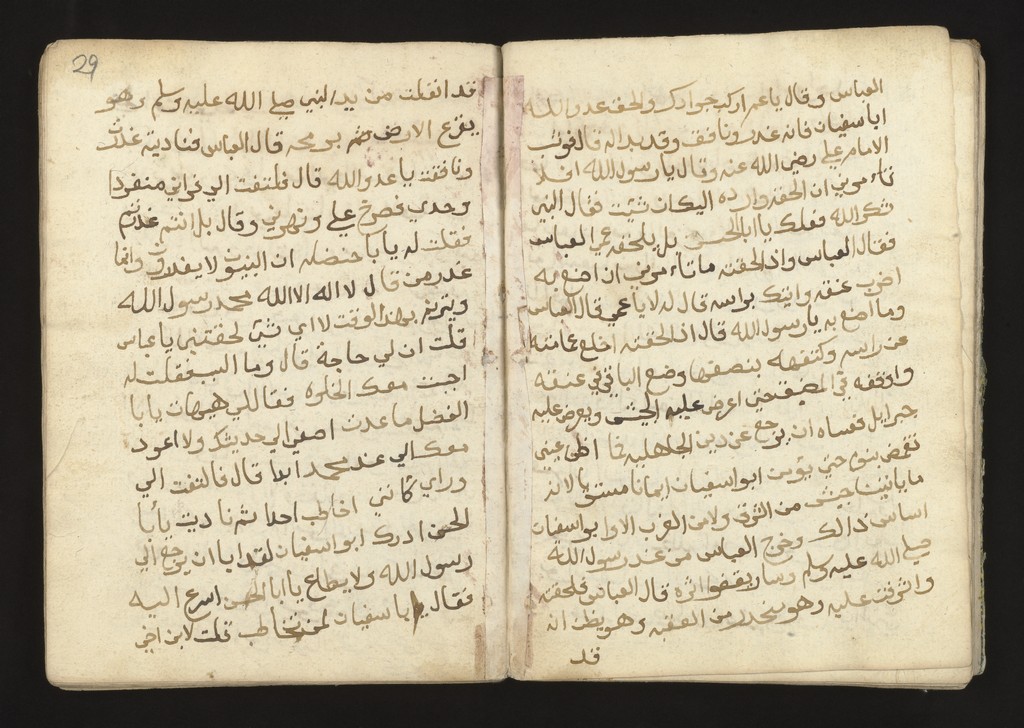 العباس وقال يا عمر اركب جوادك والحقه عدو الله
ابا سفيان فانه غدر ونافق وقد بدا له قال فوثب
الامام علي رضي الله عنه وقال يا رسول الله انا
تاءمرني ان الحقه وارده اليك ان شيت فقال النبي
شكر الله فعلك يا ابا الحسن بل يلحقه عمي العباس
فقال العباس واذا لحقته ما تاءمرني ان اصنع به
اضرب عنقه واتيك براسه قال له لا يا عمي قال العباس
وما اصنع به يا رسول الله قال اذا لحقته اخلع عمامته
عن راسه وكتفهه بنصفها وضع الباقي في عنقه
واوقفه في المضيق حتى اعرض عليه الجيش ويعرض عليه
جبرايل فعساه ان يرجع عن دين الجاهليه فما اظن عيني
تغمض بنوم حتى يؤمن ابوا سفيان ايمانا
ما ياتينا جيش من الشرق ولا من الغرب الا وابوا سفيان
اساس ذالك وخرج العباس من عند رسول الله
صلي الله عليه وسلم وسار يقفوا اثره قال العباس فلحقته
واشرفت عليه وهو ينحدر من العقبه وهو يظن انه
قد
29
قد انفلت من يد النبي صلي الله عليه وسلم وهو
يقرع الارض برمحه قال العباس فناديته غدرت
ونافقت يا عدو الله قال فلتفت الي فراني منفردا
وحدي فصرخ علي ونهرني وقال بل انتم غدرتم
فقلت له يا با حنضله ان النبيون لا يغدرون وانما
غدر من قال لا اله الا الله محمد رسول الله
بهذا الوقت لاي شئ لحقتني يا عباس
قلت ان لي حاجة قال وما السبب فقلت له
احببت معك الخلوه فقال لي هيهات يا با
الفضل ما عدت اصغي الي حديثك ولا اعود
معك الي عند محمد ابدا قال فالتفت الي
وراي كانني اخاطب احدا ثم ناديت يا با
الحسن ادرك ابوا سفيان لقد ابا ان يرجع الي
رسول الله ولا يطاع يا ابا الحسن اسرع اليه
فقال ابا سفيان لمن تخاطب قلت لابن اخي